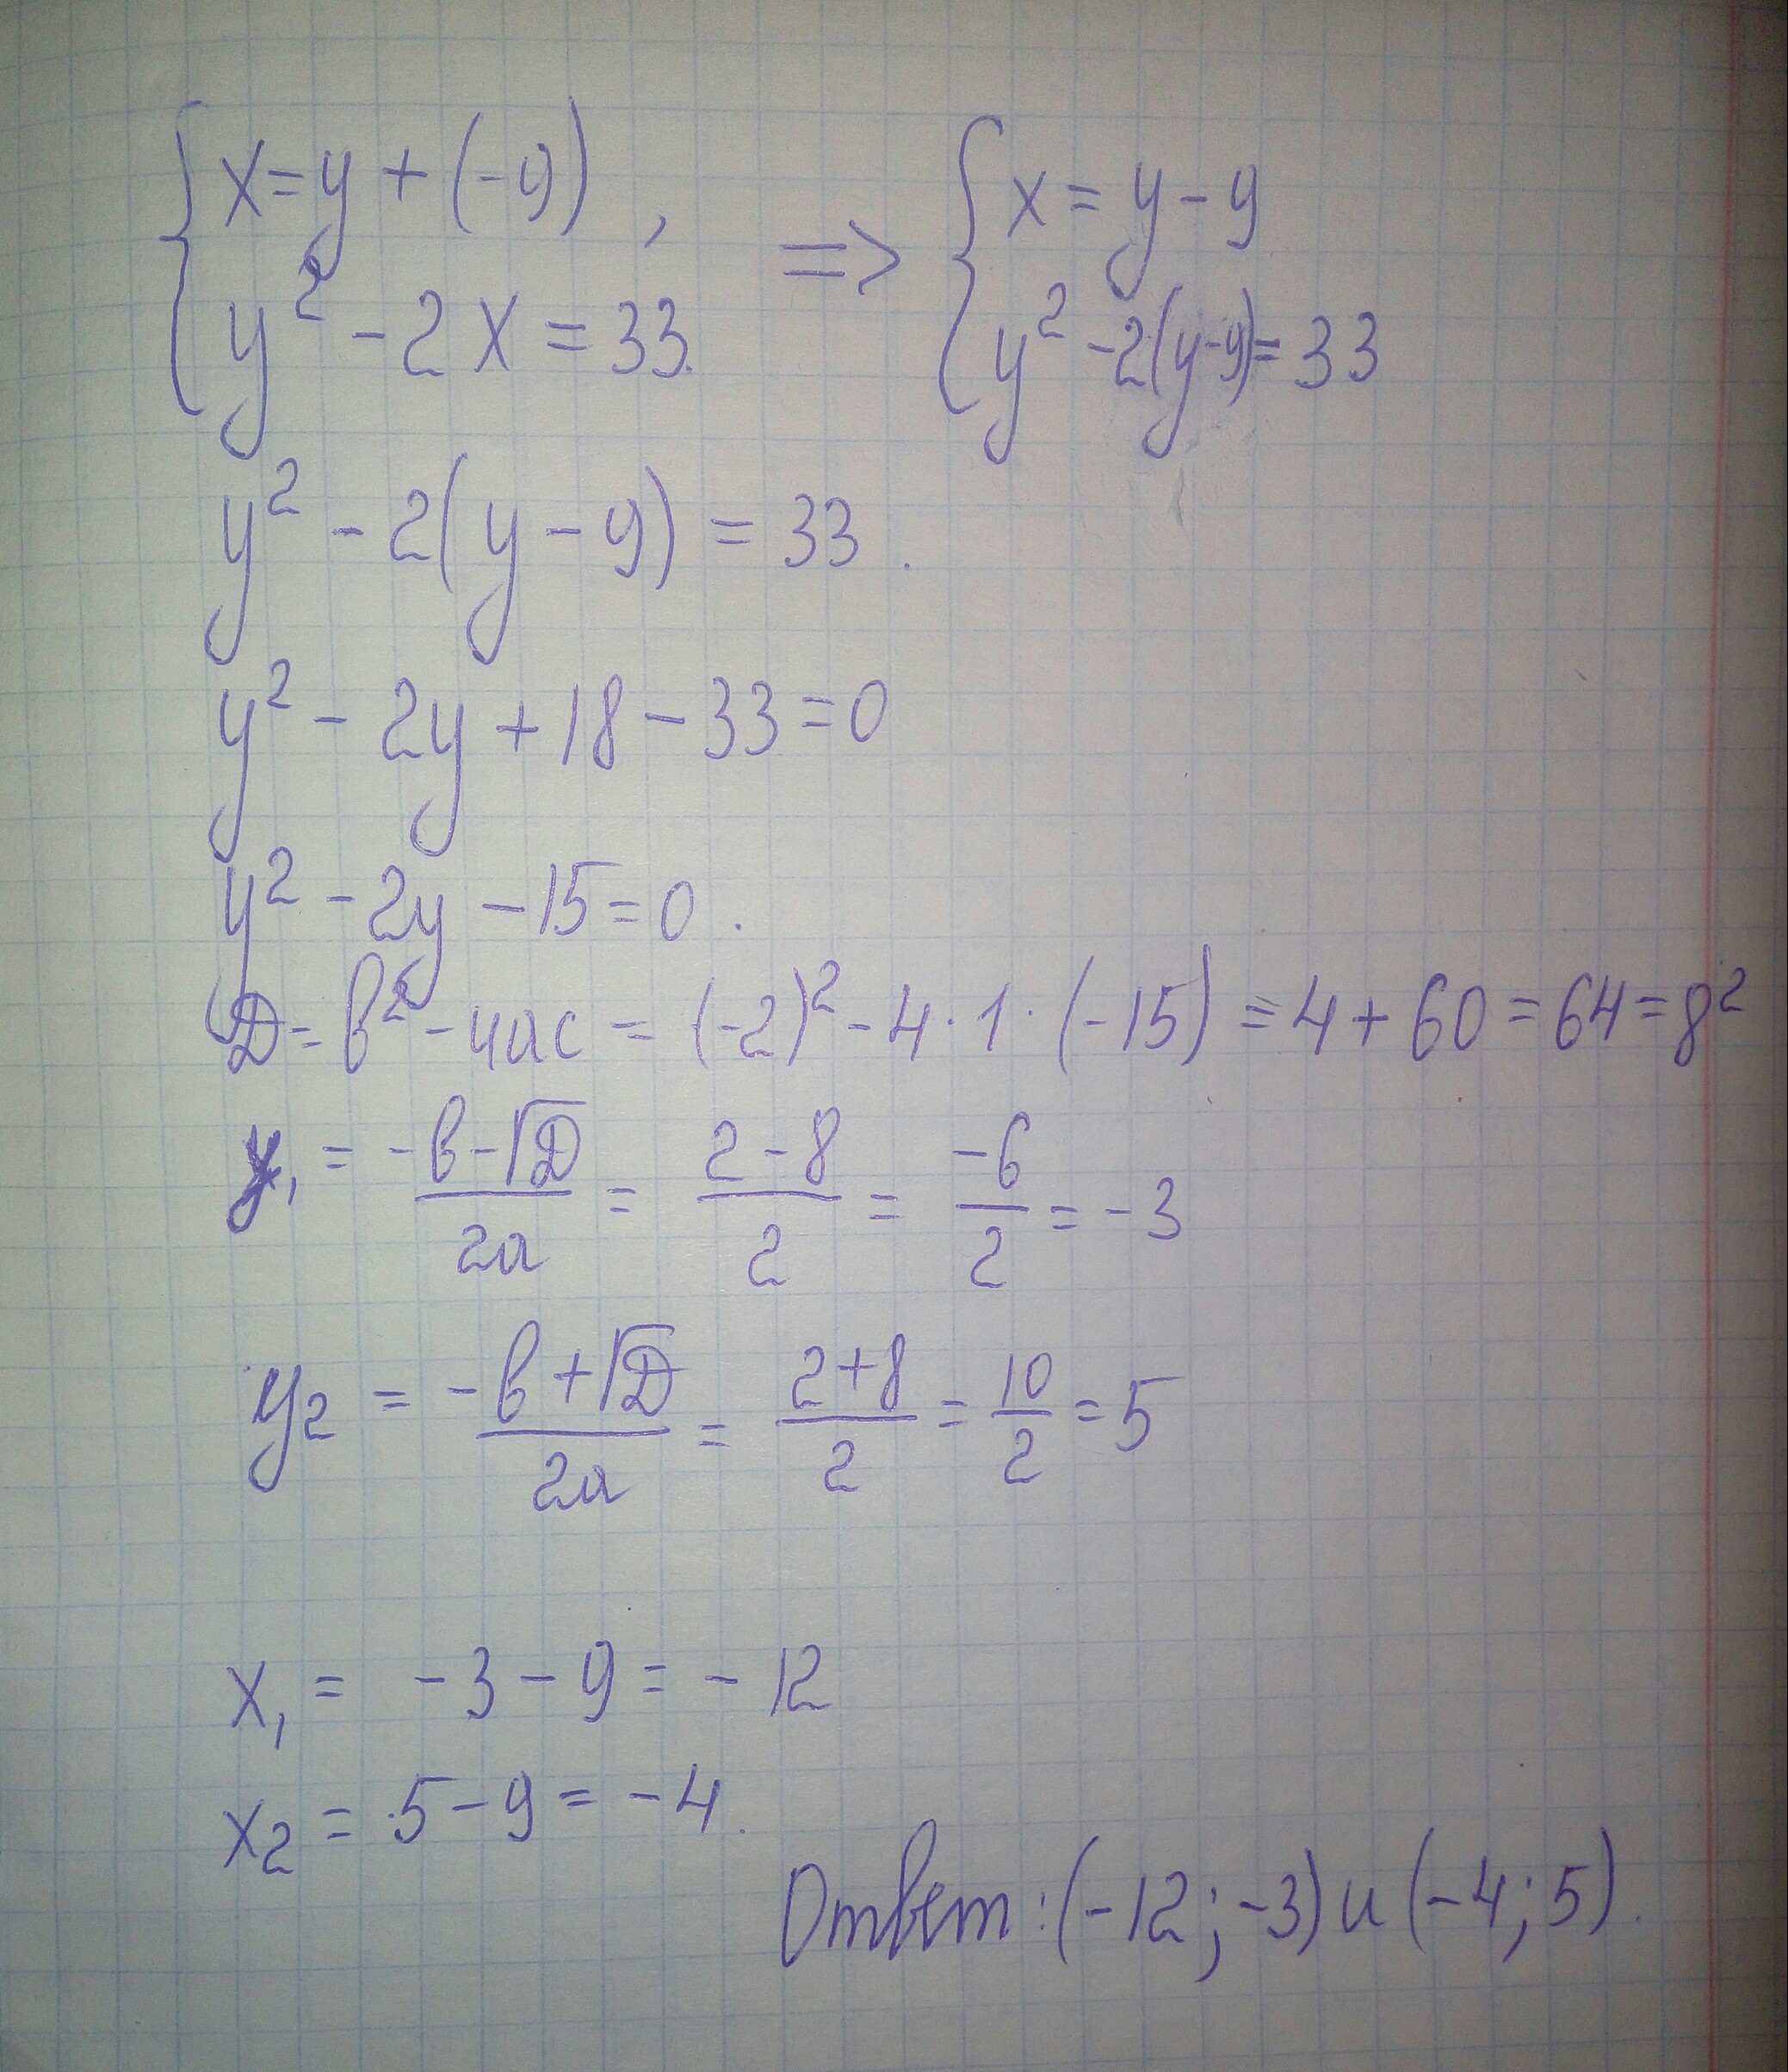 { x = y + (-9), => { x = y - 9
{ y² - 2x = 33. { y² - 2(y-9) = 33
y² - 2(y - 9) = 33.
y² - 2y + 18 - 33 = 0
y² - 2y - 15 = 0.
D = b² - 4ac = (-2)² - 4·1·(-15) = 4 + 60 = 64 = 8²
y₁ = (-b - √D)/2a = (2 - 8)/2 = -6/2 = -3
y₂ = (-b + √D)/2a = (2 + 8)/2 = 10/2 = 5
x₁ = -3 - 9 = -12
x₂ = 5 - 9 = -4.
Ответ: (-12; -3) и (-4; 5).